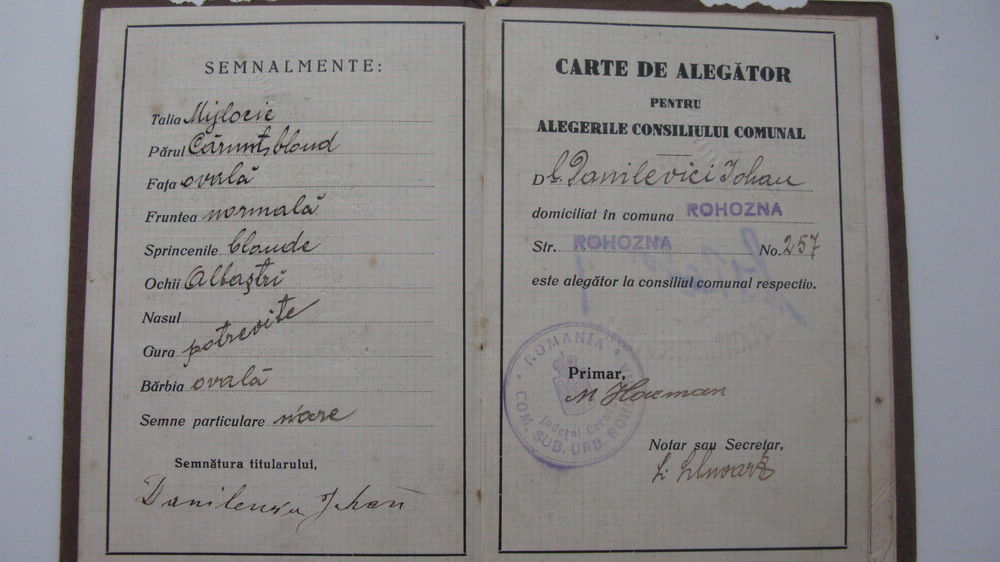 SEMNALMENTE:
Talia Mijlocie
Părul Cărunt, blond
Fața ovală
Fruntea normală
Sprincenile blonde
Ochii Albaștri
Nasul
Gura potrevite
Bărbia ovală
Semne particulare n'are
Semnătura titularului,
Johan
CARTE DE ALEGĂTOR
PENTRU
ALEGERILE CONSILIULUI COMUNAL
Dl. Danilevici Johan
domiciliat în comuna ROHOZNA
Str. ROHOZNA No. 257
este alegător la consiliul comunal respectiv.
ROMANIA
Județul
COM. SUB. URB. ROH
Primar,
M
Notar sau Secretar,